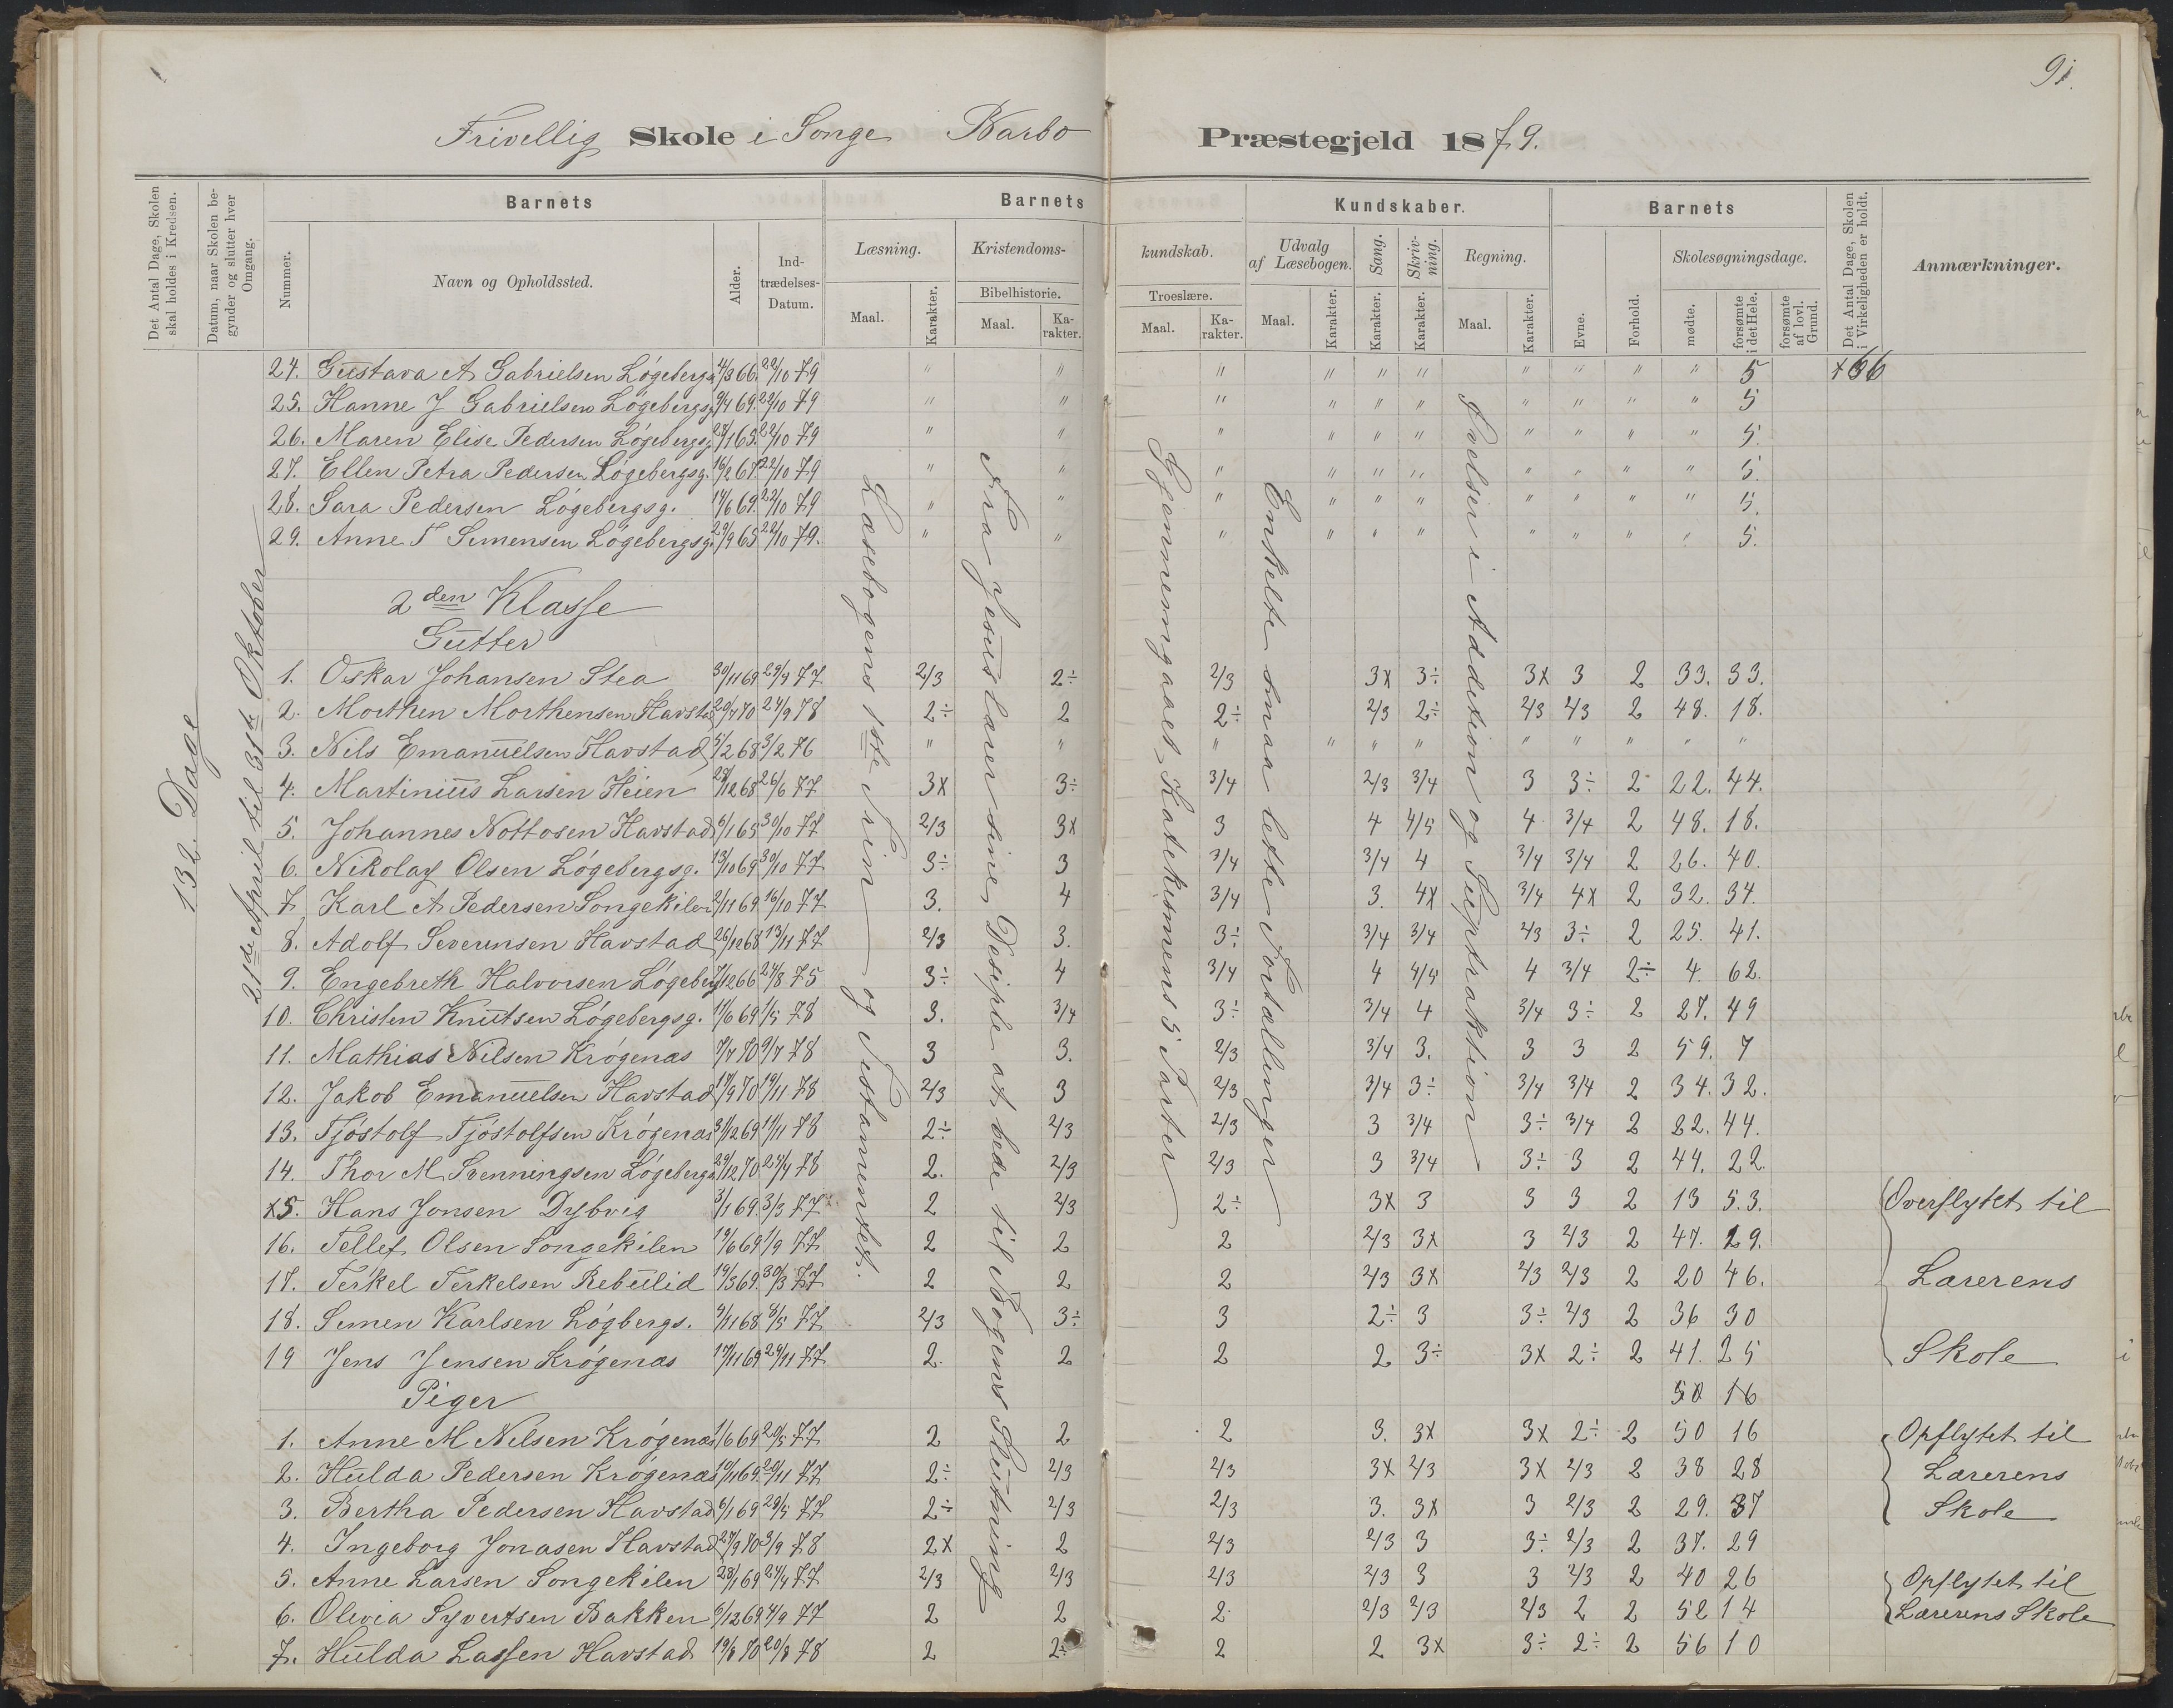 91.
Frivillig Skole i Songe Barbo Præstegjeld 1879.
Det Antal Dage, Skolen skal holdes i Kredsen.
Datum, naar Skolen begynder og slutter hver Omgang.
Barnets
Nummer.
Navn og Opholdssted.
Alder.
Indtrædelses-Datum.
Barnets Kundskaber.
Læsning.
Maal.
Karakter.
Kristendomskundskab.
Bibelhistorie.
Maal.
Karakter.
Troeslære.
Maal.
Karakter.
Udvalg af Læsebogen.
Maal.
Karakter.
Sang.
Karakter.
Skrivning.
Karakter.
Regning.
Maal.
Karakter.
Barnets
Evne.
Forhold.
Skolesøgningsdage.
mødte.
forsømte i det Hele.
forsømte af lovl. Grund.
Det Antal Dage, Skolen i Virkeligheden er holdt.
Anmærkninger.
132 Dage
21de April til 31te Oktober
Læsebogens 1ste Trin og Testamentet.
Fra Jesus lærer sine Disiple at bede til Bogens Slutning
Gjennemgaaet Katekismens 5 Parter
Enkelte smaa lette Fortællinger
Øvelser i Addition og Suptraktion
24. Gustava A Gabrielsen Lógebergsg 4/3 66. 22/10 79 " " " " " " " " " " 5 +66
25. Hanne J Gabrielsen Lógebergsg 9/4 69. 22/10 79 " " " " " " " " " " 5
26. Maren Elise Pedersen Lógebergsg. 22/10 79 " " " " " " " " " " 5.
27. Ellen Petra Pedersen Lógebergsg. 16/2 67 22/10 79 " " " " " " " " " " 5.
28. Sara Pedersen Lógebergsg. 14/6 69. 22/10 79 " " " " " " " " " " 5.
29. Anne T Simensen Lógebergsg. 29/9 65 22/10 79. " " " " " " " " " " 5.
2den Klasse
Gutter
1. Oskar Johansen Stea 30/11 69 29/4 77 2/3 2÷ 2/3 3x 3÷ 3x 3 2 33. 33.
2. Morthen Morthensen Havstad 20/4 70 24/9 78 2÷ 2 2÷ 2/3 2÷ 2/3 2/3 2 48. 18.
3. Nils Emanuelsen Havstad 5/2 68 3/2 76 " " " " " " " " " " "
4. Martinius Larsen Heien 28/12 68 26/6 77 3x 3÷ 3/4 2/3 3/4 3 3÷ 2 22. 44.
5. Johannes Nottosen Havstad 6/1 65 30/10 77 2/3 3x 3 4 4/5 4 3/4 2 48. 18.
6. Nikolay Olsen Lógebergsg. 13/10 69 30/10 77 3÷ 3 3/4 3/4 4 3/4 3/4 2 26. 40.
7. Karl A Pedersen Songekilen 2/11 69 16/10 77 3. 4 3/4 3. 4x 3/4 4x 2 32. 34.
8. Adolf Severinsen Havstad 26/12 68 13/11 77 2/3 3. 3÷ 3/4 3/4 2/3 3÷ 2 25. 41.
9. Engebreth Halvorsen Lógeberg 7/12 66 24/8 75 3÷ 4 3/4 4 4/5 4 3/4 2÷ 4. 62.
10. Christen Knutsen Lógebergsg. 11/6 69 1/5 78 3. 3/4 3÷ 3/4 4 3/4 3÷ 2 27. 49
11. Mathias Nilsen Krógenæs 7/7 70 9/7 78 3 3. 2/3 3/4 3. 3 3 2 59. 7
12. Jakob Emanuelsen Havstad 17/9 70 19/11 78 2/3 3 2/3 3/4 3÷ 3/4 3/4 2 34. 32.
13. Tjóstolf Tjóstolfsen Krógenæs 31/12 69 11/11 78 2÷ 2/3 2/3 3 3/4 3÷ 3/4 2 22. 44.
14. Thor M Svenningsen Lógebergs 29/12 70 24/4 78 2. 2/3 2/3 3 3/4 3÷ 3 2 44. 22.
x5. Hans Jonsen Dybvig 3/1 69. 3/3 77. 2 2/3 2÷ 3x 3 3 3 2 13 53. Overflytet til
16. Tellef Olsen Songekilen 19/6 69 1/9 77 2 2 2 2/3 3x 3 2/3 2 47. 19.
17. Terkel Terkelsen Rebulid 19/3 69. 30/3 77 2 2 2 2/3 3x 2/3 2/3 2 20 46. Lærerens
18. Simen Karlsen Lógbergs. 9/11 68 8/5 77 2/3 3÷ 3 2÷ 3 3÷ 2/3 2 36 30
19 Jens Jensen Krógenæs 17/11 69 24/11 77 2. 2 2 2 3÷ 3x 2÷ 2 41. 25 Skole
Piger 50 16
1. Anne M Nilsen Krógenæs 1/6 69 20/5 77 2 2 2 3. 3x 3x 2÷ 2 50 16 Opflytet til
2. Hulda Pedersen Krógenæs 19/11 69. 20/11 77 2÷ 2/3 2/3 3x 2/3 3x 2/3 2 38 28 Lærerens
3. Bertha Pedersen Havstad 6/1 69 29/5 77 2÷ 2/3 2/3 3. 3x 3 2/3 2 29. 37 Skole
4. Ingeborg Jonasen Havstad 27/9 70 3/9 78 2x 2 2/3 2/3 3 3÷ 2/3 2 37. 29
5. Anne Larsen Songekilen 28/1 69 24/4 77 2/3 2/3 2/3 2/3 3 3 2/3 2 40 26 Opflytet til
6. Olivia Syvertsen Bakken 6/12 69 4/9 77 2 2 2 2/3 2/3 2/3 2 2 52 14 Lærerens Skole
7. Hulda Lassen Havstad 19/8 70 20/8 78 2 2÷ 2 2 3x 3÷ 2÷ 2 56 10